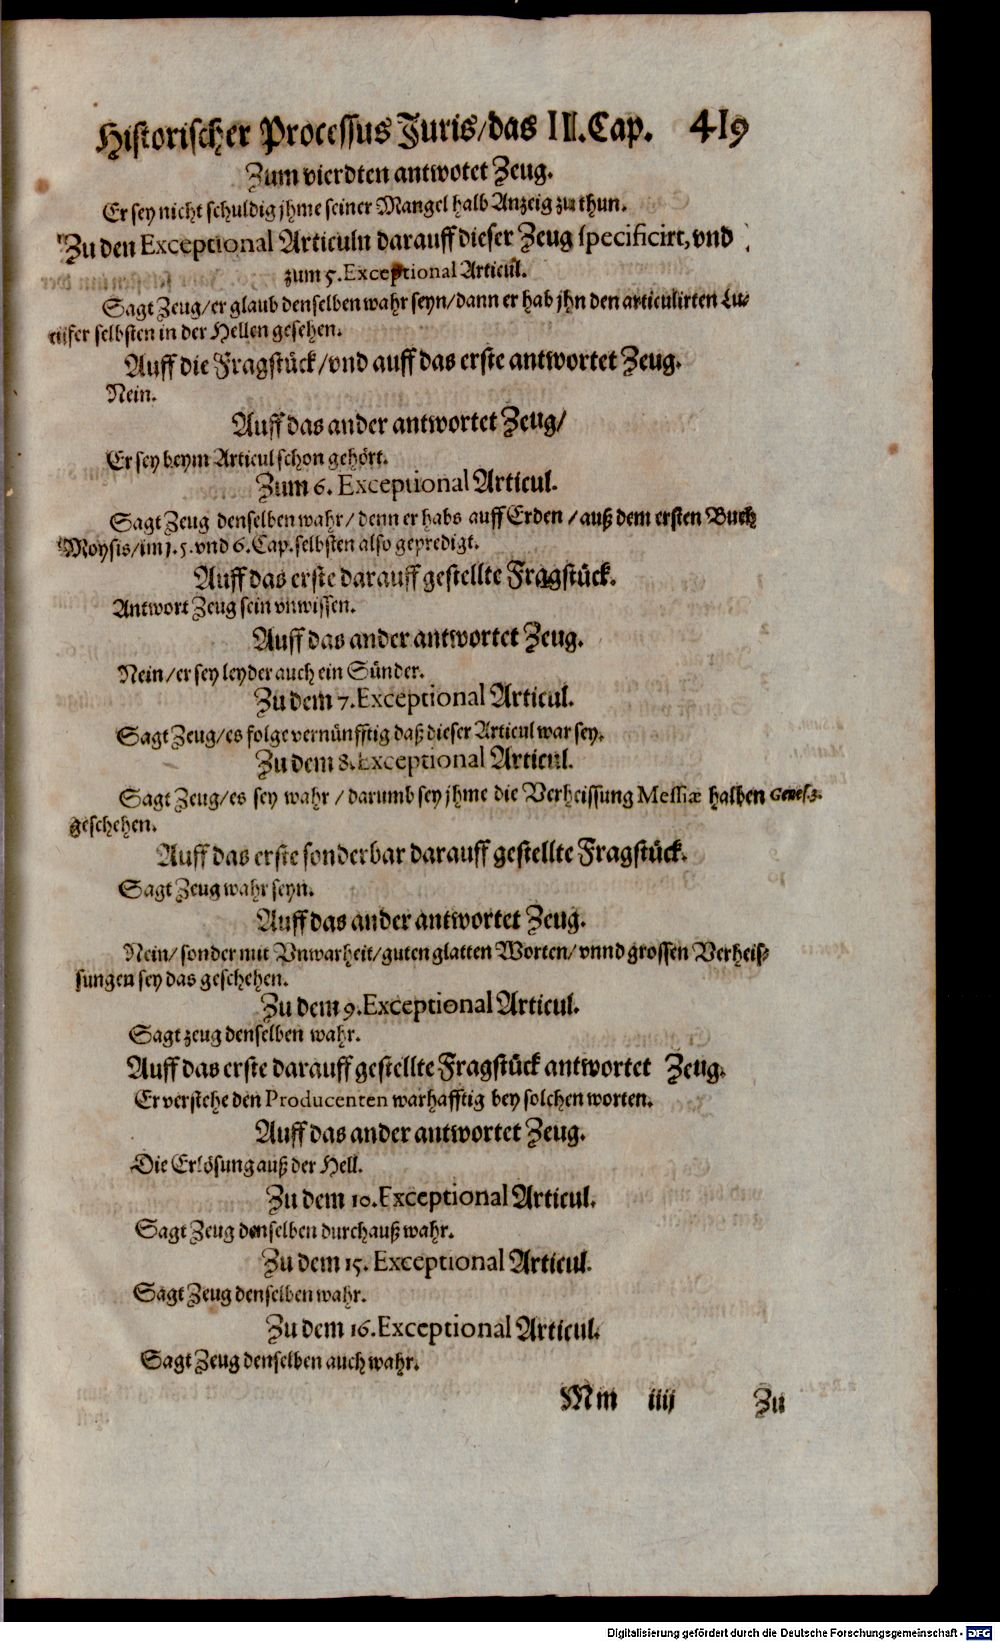 Historischer Processus Juris/das III.Cap. 419
Zum vierdten antwotet Zeug.
Er sey nicht schuldig jhme seiner Mangel halb Anzeig zu thun.
Zu den Exceptional Articuln darauff dieser Zeug specificirt, vnd
zum 5. Exceptional Articul.
Sagt Zeug/er glaub denselben wahr seyn/dann er hab jhn den articulirten Lu-
cifer selbsten in der Hellen gesehen.
Auff die Fragstück/vnd auff das erste antwortet Zeug.
Nein.
Auff das ander antwortet Zeug/
Er sey beym Articul schon gehört.
Zum 6. Exceptional Articul.
Sagt Zeug denselben wahr/denn er habs auff Erden/auß dem ersten Buch
Moysis/im 5. vnd 6. Cap. selbsten also gepredigt.
Auff das erste darauff gestellte Fragstück.
Antwort Zeug sein vnwissen.
Auff das ander antwortet Zeug.
Nein/er sey leyder auch ein Sünder.
Zu dem 7. Exceptional Articul.
Sagt Zeug/es folge vernünfftig daß dieser Articul war sey.
Zu dem 8. Exceptional Articul.
Sagt Zeug/es sey wahr/darumb sey jhme die Verheissung Messiæ halben Genes.3.
geschehen.
Auff das erste sonderbar darauff gestellte Fragstück.
Sagt Zeug wahr seyn.
Auff das ander antwortet Zeug.
Nein/sonder mit Vnwarheit/guten glatten Worten/vnnd grossen Verheis-
sungen sey das geschehen.
Zu dem 9. Exceptional Articul.
Sagt zeug denselben wahr.
Auff das erste darauff gestellte Fragstück antwortet Zeug.
Er verstehe den Producenten warhafftig bey solchen worten.
Auff das ander antwortet Zeug.
Die Erlösung auß der Hell.
Zu dem 10. Exceptional Articul.
Sagt Zeug denselben durchauß wahr.
Zu dem 15. Exceptional Articul.
Sagt Zeug denselben wahr.
Zu dem 16. Exceptional Articul.
Sagt Zeug denselben auch wahr.
Mm iiij Zu
Digitalisierung gefördert durch die Deutsche Forschungsgemeinschaft - DFG